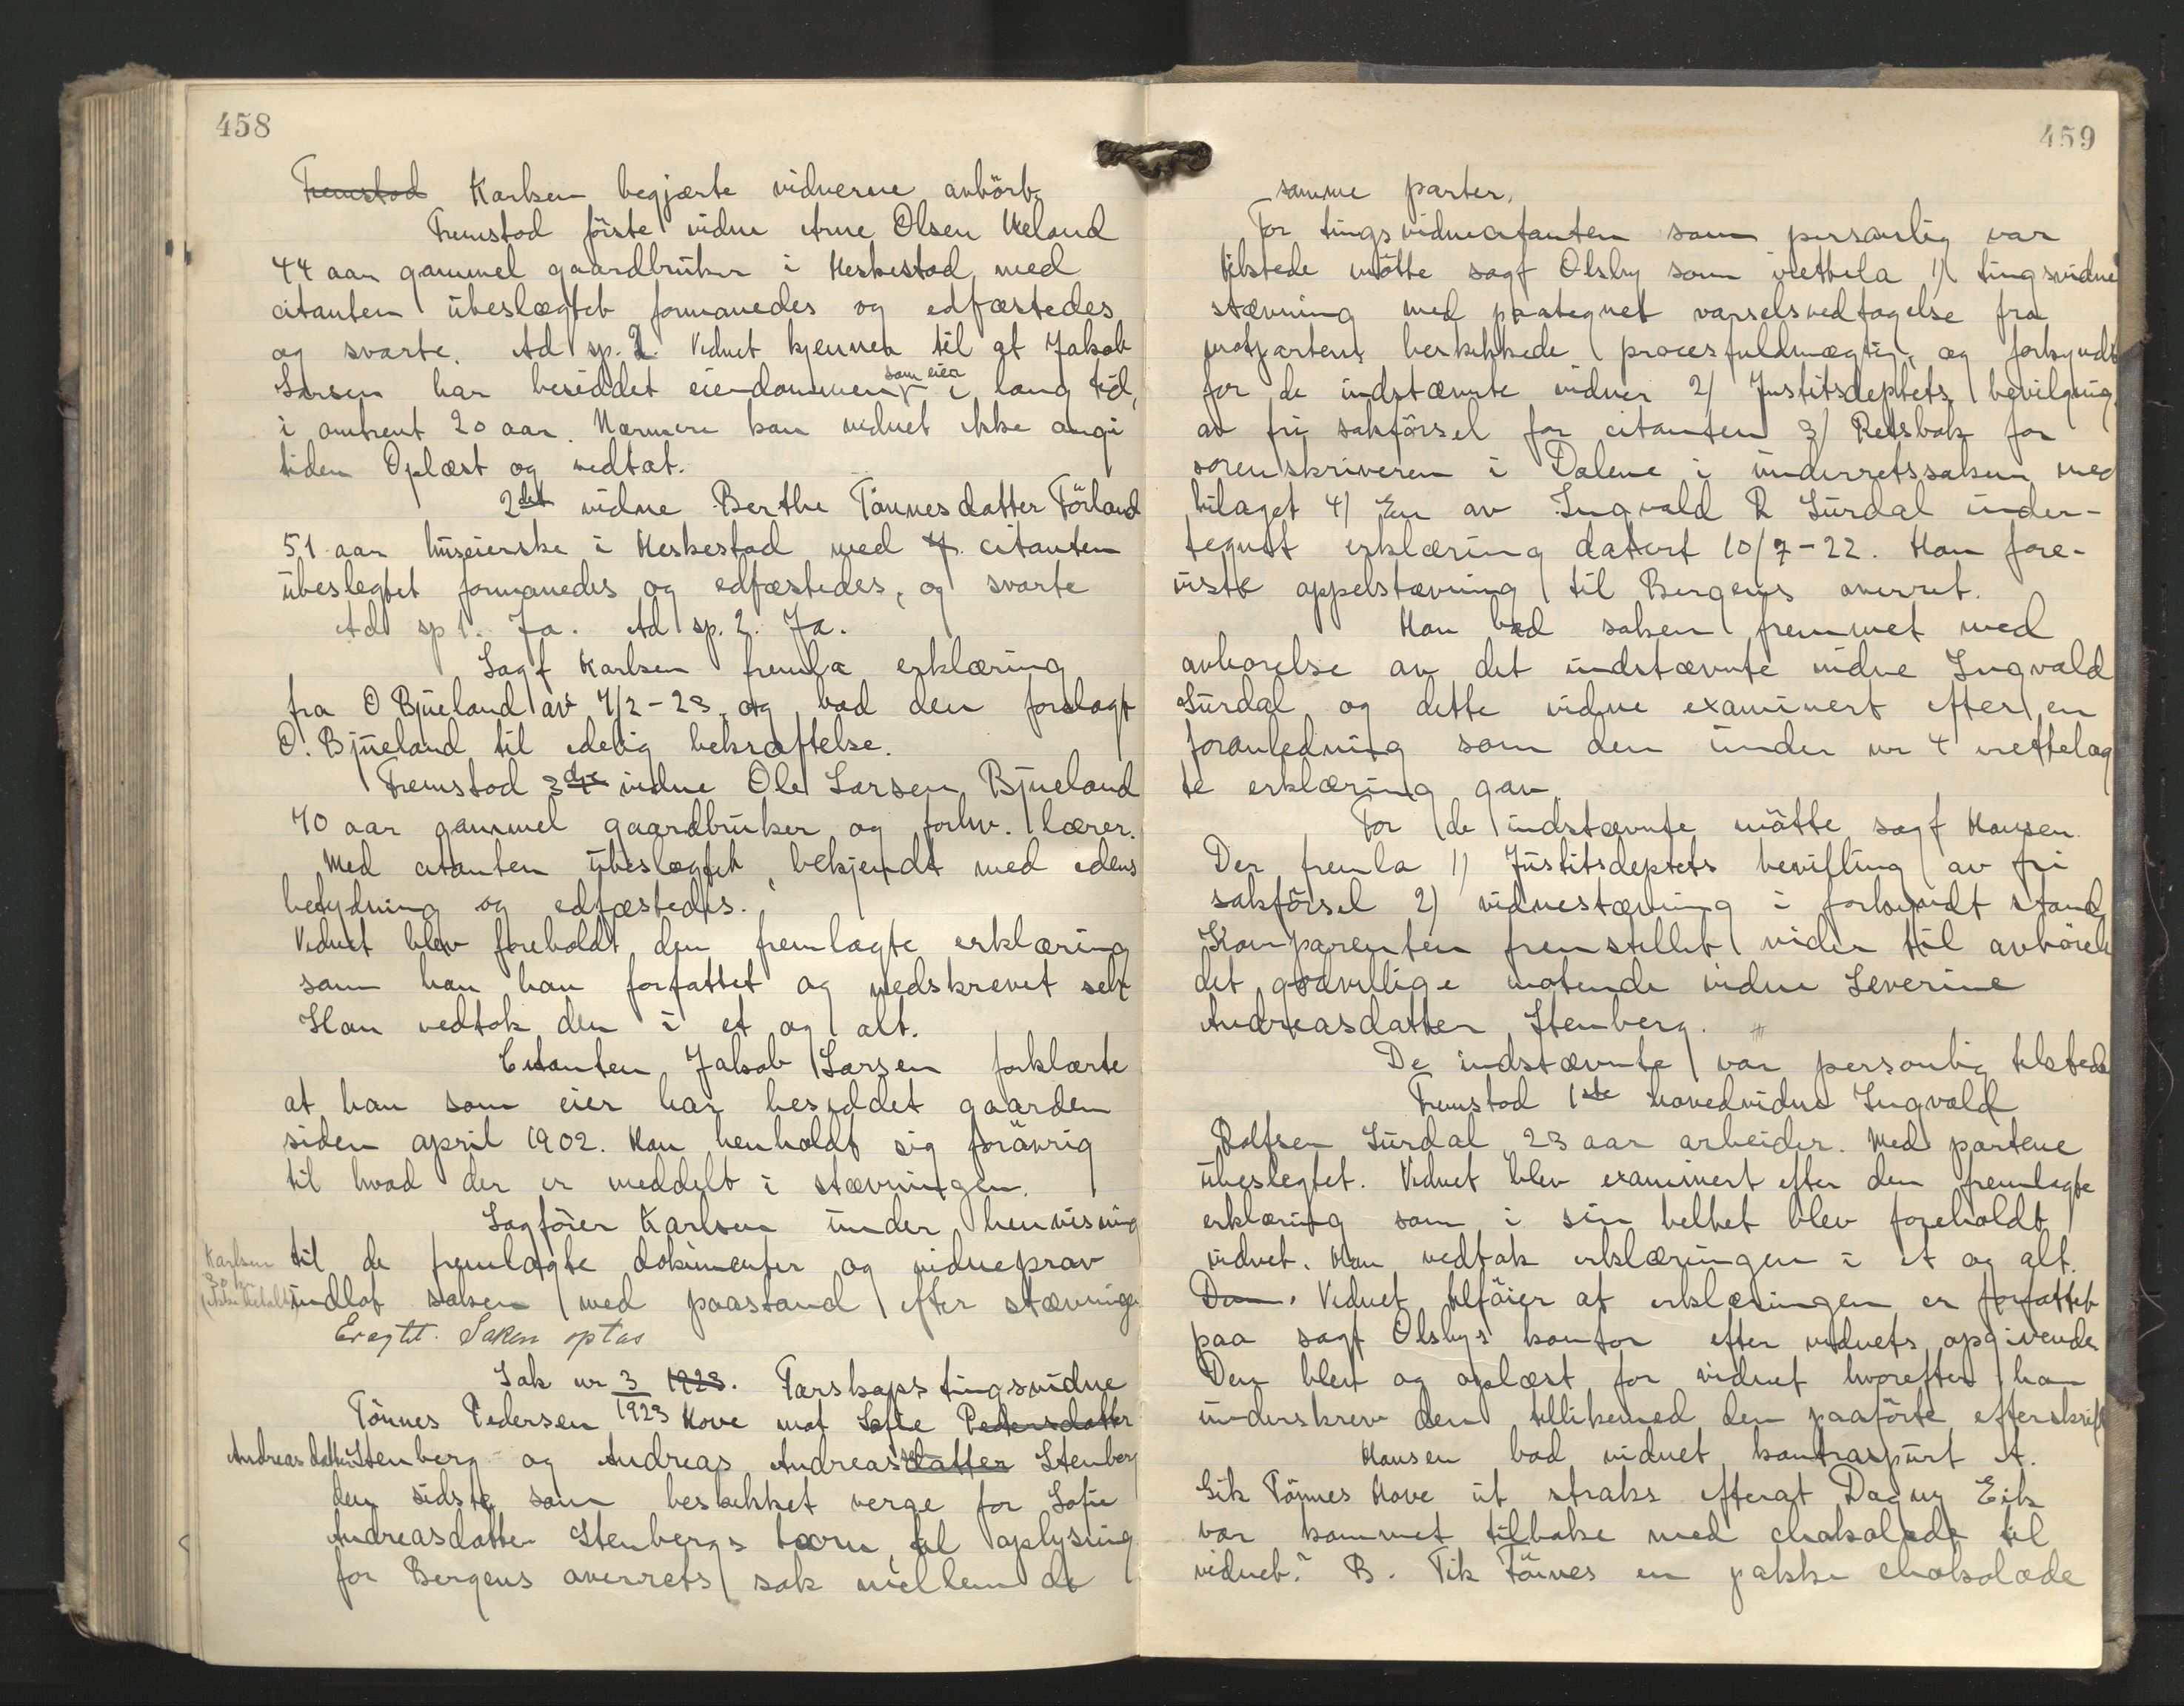 458
Fremstod Karlsen begjærte vidnerne avhört.
Fremstod förste vidne Arne Olsen Meland
44 aar gammel gaardbruker i Heskestad, med
citanten ubeslægtet formanedes og edfæstedes
og svarte. Ad sp. 2. Vidnet kjenner til at Jakob
Larsen har besiddet eiendommen som eier i lang tid,
i omkrent 20 aar. Nærmere kan vidnet ikke angi
tiden Oplæst og vedtat.
2det vidne Berthe Tönnesdatter Förland
51 aar huseierske i Heskestad med citanten
ubeslegtet formanedes og edfæstedes, og svarte
Ad sp 1. Ja. Ad sp. 2. Ja.
Sagf Karlsen fremla erklæring
fra O Bjueland av 7/2-23, og bad den forelagt
O. Bjueland til edelig bekræftelse.
Fremstod 3die vidne Ole Larsen Bjueland
70 aar gammel gaardbruker og forhv. lærer.
Med citanten ubeslægtet, bekjendt med edens
betydning og edfæstedes.
Vidnet blev foreholdt den fremlagte erklæring
som han har forfattet og nedskrevet selv
Han vedtok den i et og alt.
Citanten Jakob Larsen forklarte
at han som eier har besiddet gaarden
siden april 1902. Han henholdt sig forövrig
til hvad der er meddelt i stævningen.
Sagförer Karlsen under henvisning
til de fremlagte dokumenter og vidneprov
Karlsen
30 kr
(ikke betalt)
indlot saken med paastand efter stævningen
Eragtet. Saken optas
Sak nr 3/1923 1923. Farskaps tingsvidne
Tönnes Pedersen Hove mot Sofie Pedersdatter
Andreasdatter Stenberg og Andreas Andreasdatter sen Stenberg
den sidste som beskikket verge for Sofie
Andreasdatter Stenbergs barn, til oplysning
for Bergens overrets sak mellem de
459
samme parter.
For tingsvidnecitanten som personlig var
tilstede mötte sagf Olsby som irettela 1) tingsvidne
stævning med paategnet varselsvedtagelse fra
motpartens beskikkede procesfuldmægtig, og forkyndt
for de indstævnte vidner 2) Justitsdeptets bevilgning
av fri sakförsel for citanten 3) Retsbok for
sorenskriveren i Dalene i underretssaken med
bilaget 4) En av Ingvald R Surdal under-
tegnet erklæring datert 10/7-22. Han fore-
viste appelstævning til Bergens overret.
Han bad saken fremmet med
avhørelse av det indstævnte vidne Ingvald
Surdal og dette vidne examinert efter en
foranledning som den under nr 4 irettelag
te erklæring gav.
For de indstævnte mötte sagf Hansen.
Der fremla 1) Justitsdeptets bevilling av fri
sakförsel 2) vidnestævning i forkyndt stand
Komparenten fremstillet vider til avhörelse
det godvillige møtende vidne Severine
Andreasdatter Stenberg.
De indstævnte var personlig tilstede
Fremstod 1ste hovedvidne Ingvald
Rolfsen Surdal 23 aar arbeider. Med partene
ubeslegtet. Vidnet blev examinert efter den fremlagte
erklæring som i sin helhet blev foreholdt
vidnet. Han vedtok erklæringen i et og alt.
Den. Vidnet tilföier at erklæringen er forfattet
paa sagf Olsbys kontor efter vidnets opgivende
Den blev og oplæst for vidnet hvorefter han
underskrev den tillikemed den paaförte efterskrift
Hansen bad vidnet kontraspurt A.
Gik Tönnes Hove ut straks efterat Dagny Eik
var kommet tilbake med chokolade til
vidnet? B. Fik Tönnes en pakke chokolade